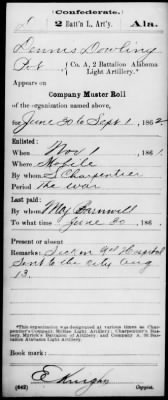 Confederate.
D 2 Batt'n L. Art'y. Ala.
Dennis Dowling
Pvt, Co. A, 2 Battalion Alabama
Light Artillery.*
Appears on
Company Muster Roll
of the organization named above,
for June 30 to Sept 1, 1862.
Enlisted:
When Nov 1, 1861.
Where Mobile
By whom S. Charpentier
Period The war
Last paid:
By whom Maj Barnwell
To what time June 30, 186
Present or absent
Remarks: Sick in Gen Hospital
Sent to the city Aug
13.
*This organization was designated at various times as Charpentier's Company, Mobile Light Artillery; Charpentier's Battery, Myrick's Battalion of Artillery; and Company A, 2d Battalion Alabama Light Artillery.
Book mark:
(642) Copyist.